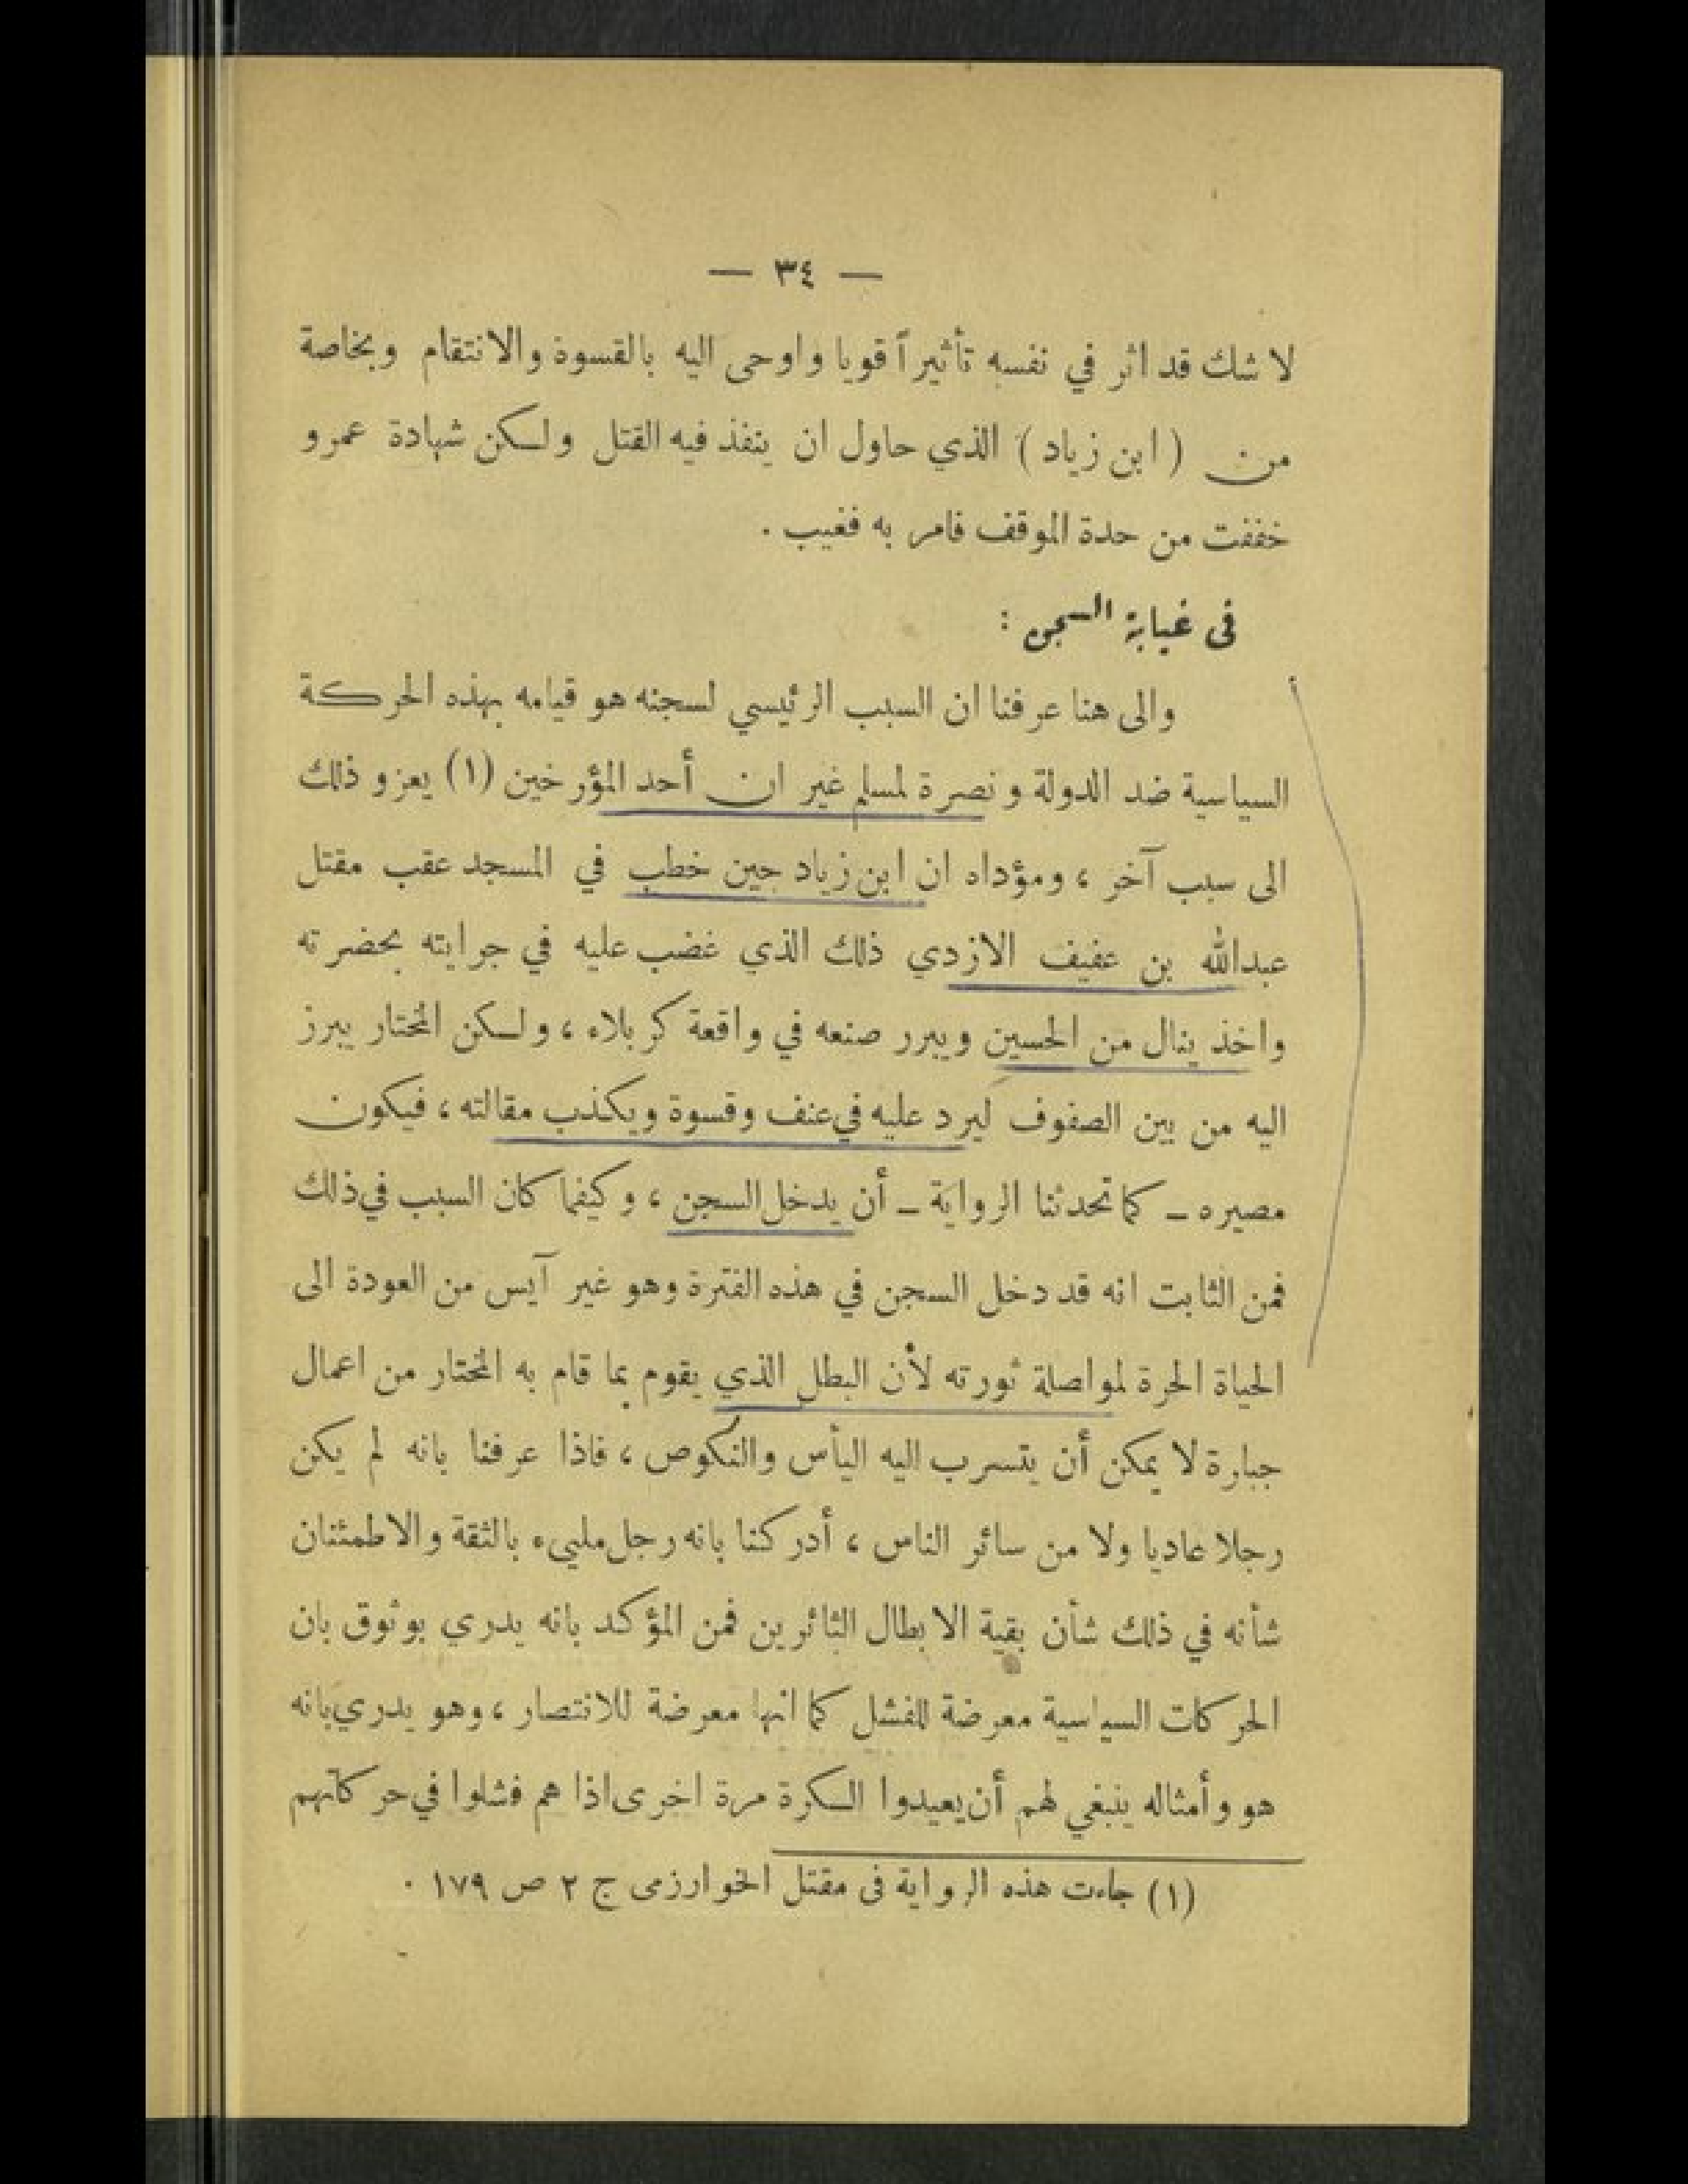 — ٣٤ —
لا شك قد اثر في نفسه تأثيراً قويا واوحى اليه بالقسوة والانتقام وبخاصة
من ( ابن زياد ) الذي حاول ان ينفذ فيه القتل ولكن شهادة عمرو
خففت من حدة الموقف فامر به فغيب .
في غيابة السجن :
والى هنا عرفنا ان السبب الرئيسي لسجنه هو قيامه بهذه الحركة
السياسية ضد الدولة ونصرة لمسلم غير ان أحد المؤرخين (١) يعزو ذلك
الى سبب آخر ، ومؤداه ان ابن زياد حين خطب في المسجد عقب مقتل
عبدالله بن عفيف الازدي ذلك الذي غضب عليه في جرايته بحضرته
واخذ ينال من الحسين ويبرر صنعه في واقعة كربلاء ، ولكن المختار يبرز
اليه من بين الصفوف ليرد عليه في عنف وقسوة ويكذب مقالته ، فيكون
مصيره - كما تحدثنا الرواية - أن يدخل السجن ، وكيفما كان السبب في ذلك
فمن الثابت انه قد دخل السجن في هذه الفترة وهو غير آيس من العودة الى
الحياة الحرة لمواصلة ثورته لأن البطل الذي يقوم بما قام به المختار من اعمال
جبارة لا يمكن أن يتسرب اليه اليأس والنكوص ، فاذا عرفنا بانه لم يكن
رجلا عاديا ولا من سائر الناس ، أدركنا بانه رجل مليء بالثقة والاطمئنان
شأنه في ذلك شأن بقية الابطال الثائرين فمن المؤكد بانه يدري بوثوق بان
الحركات السياسية معرضة للفشل كما انها معرضة للانتصار ، وهو يدري بانه
هو وأمثاله ينبغي لهم أن يعيدوا الكرة مرة اخرى اذا هم فشلوا في حركاتهم
(١) جاءت هذه الرواية في مقتل الخوارزمى ج ٢ ص ١٧٩ .